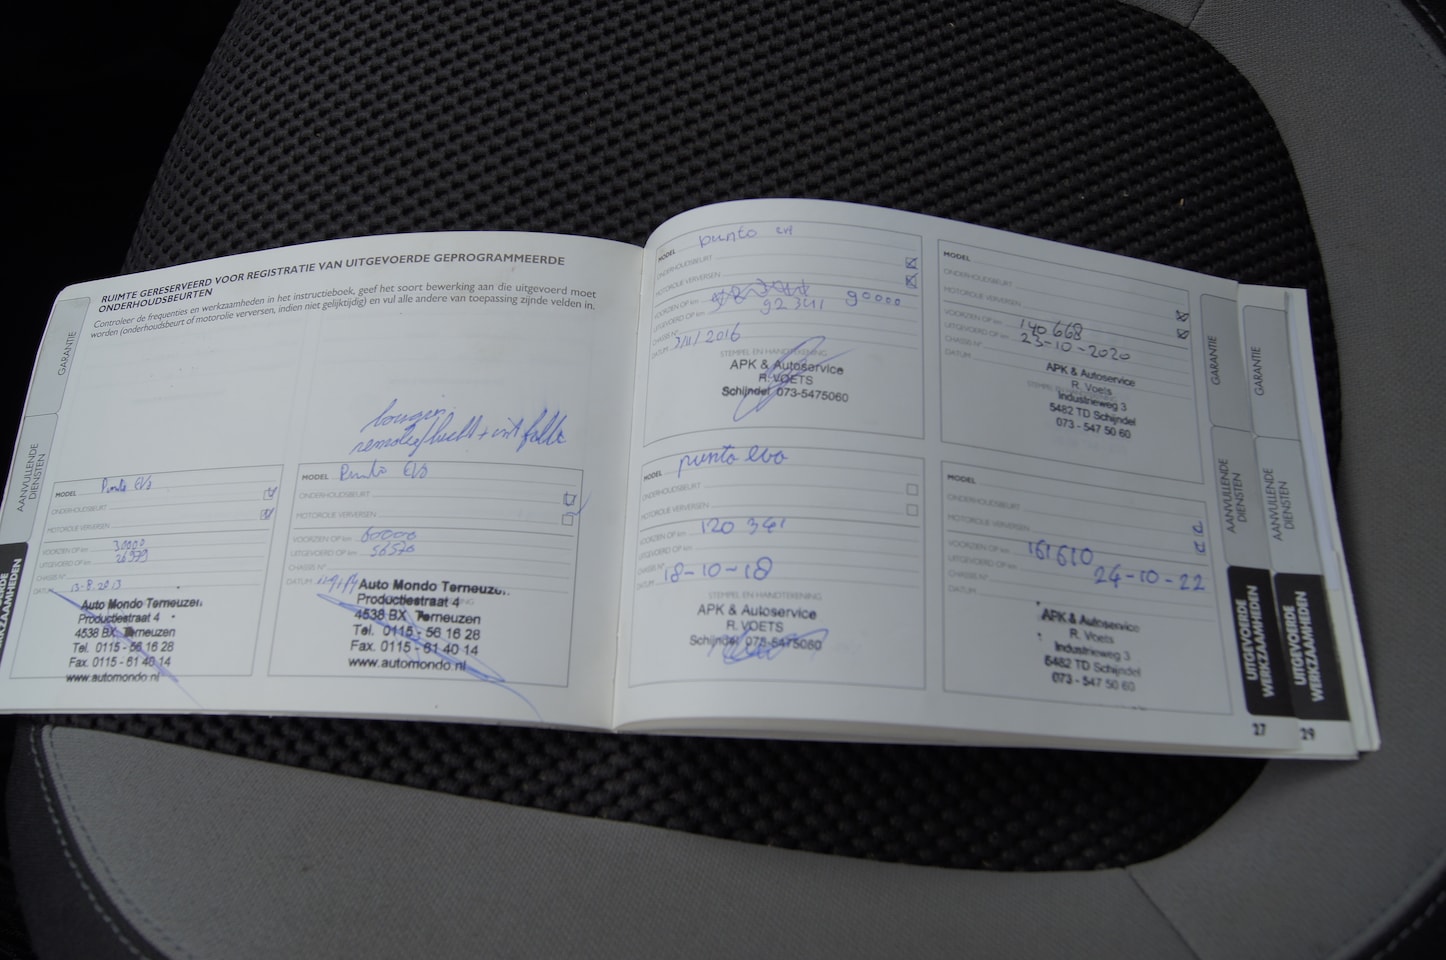 RUIMTE GERESERVEERD VOOR REGISTRATIE VAN UITGEVOERDE GEPROGRAMMEERDE
ONDERHOUDSBEURTEN
Controleer de frequenties en werkzaamheden in het instructieboek, geef het soort bewerking aan die uitgevoerd moet
worden (onderhoudsbeurt of motorolie verversen, indien niet gelijktijdig) en vul alle andere van toepassing zijnde velden in.
GARANTIE
AANVULLENDE
DIENSTEN
WERKZAAMHEDEN
MODEL Punto Evo
ONDERHOUDSBEURT
MOTOROLIE VERVERSEN
VOORZIEN OP km 30000
UITGEVOERD OP km 26979
CHASSIS N°
DATUM 13-8-2013
Auto Mondo Terneuzen
Productiestraat 4
4538 BX Terneuzen
Tel. 0115 - 56 16 28
Fax. 0115 - 61 40 14
www.automondo.nl
bougen
MODEL Punto Evo
ONDERHOUDSBEURT
MOTOROLIE VERVERSEN
VOORZIEN OP km 60000
UITGEVOERD OP km 56570
CHASSIS N°
DATUM
Auto Mondo Terneuzen
Productiestraat 4
4538 BX Terneuzen
Tel. 0115 - 56 16 28
Fax. 0115 - 61 40 14
www.automondo.nl
MODEL punto
ONDERHOUDSBEURT
MOTOROLIE VERVERSEN
VOORZIEN OP km 90000
UITGEVOERD OP km 92341
CHASSIS N°
DATUM 3/11/2016
STEMPEL EN HANDTEKENING
APK & Autoservice
R. VOETS
Schijndel 073-5475060
MODEL punto evo
ONDERHOUDSBEURT
MOTOROLIE VERVERSEN
VOORZIEN OP km 120 341
UITGEVOERD OP km
CHASSIS N°
DATUM 18-10-18
STEMPEL EN HANDTEKENING
APK & Autoservice
R. VOETS
Schijndel 073-5475060
MODEL
ONDERHOUDSBEURT
MOTOROLIE VERVERSEN
VOORZIEN OP km
UITGEVOERD OP km 140 668
CHASSIS N° 23-10-2020
DATUM
APK & Autoservice
R. Voets
Industrieweg 3
5482 TD Schijndel
073 - 547 50 60
MODEL
ONDERHOUDSBEURT
MOTOROLIE VERVERSEN
VOORZIEN OP km 161610
UITGEVOERD OP km 24-10-22
CHASSIS N°
DATUM
APK & Autoservice
R. Voets
Industrieweg 3
5482 TD Schijndel
073 - 547 50 60
GARANTIE
AANVULLENDE
DIENSTEN
UITGEVOERDE
WERKZAAMHEDEN
27
GARANTIE
AANVULLENDE
DIENSTEN
UITGEVOERDE
WERKZAAMHEDEN
29